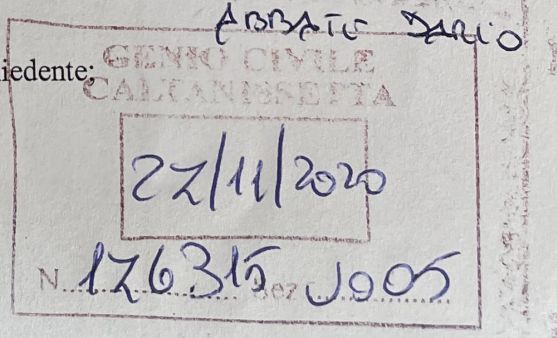 ABBATE DARIO
iedente;
GENIO CIVILE
CALTANISSETTA
27/11/2020
N. 176315 Sez J005